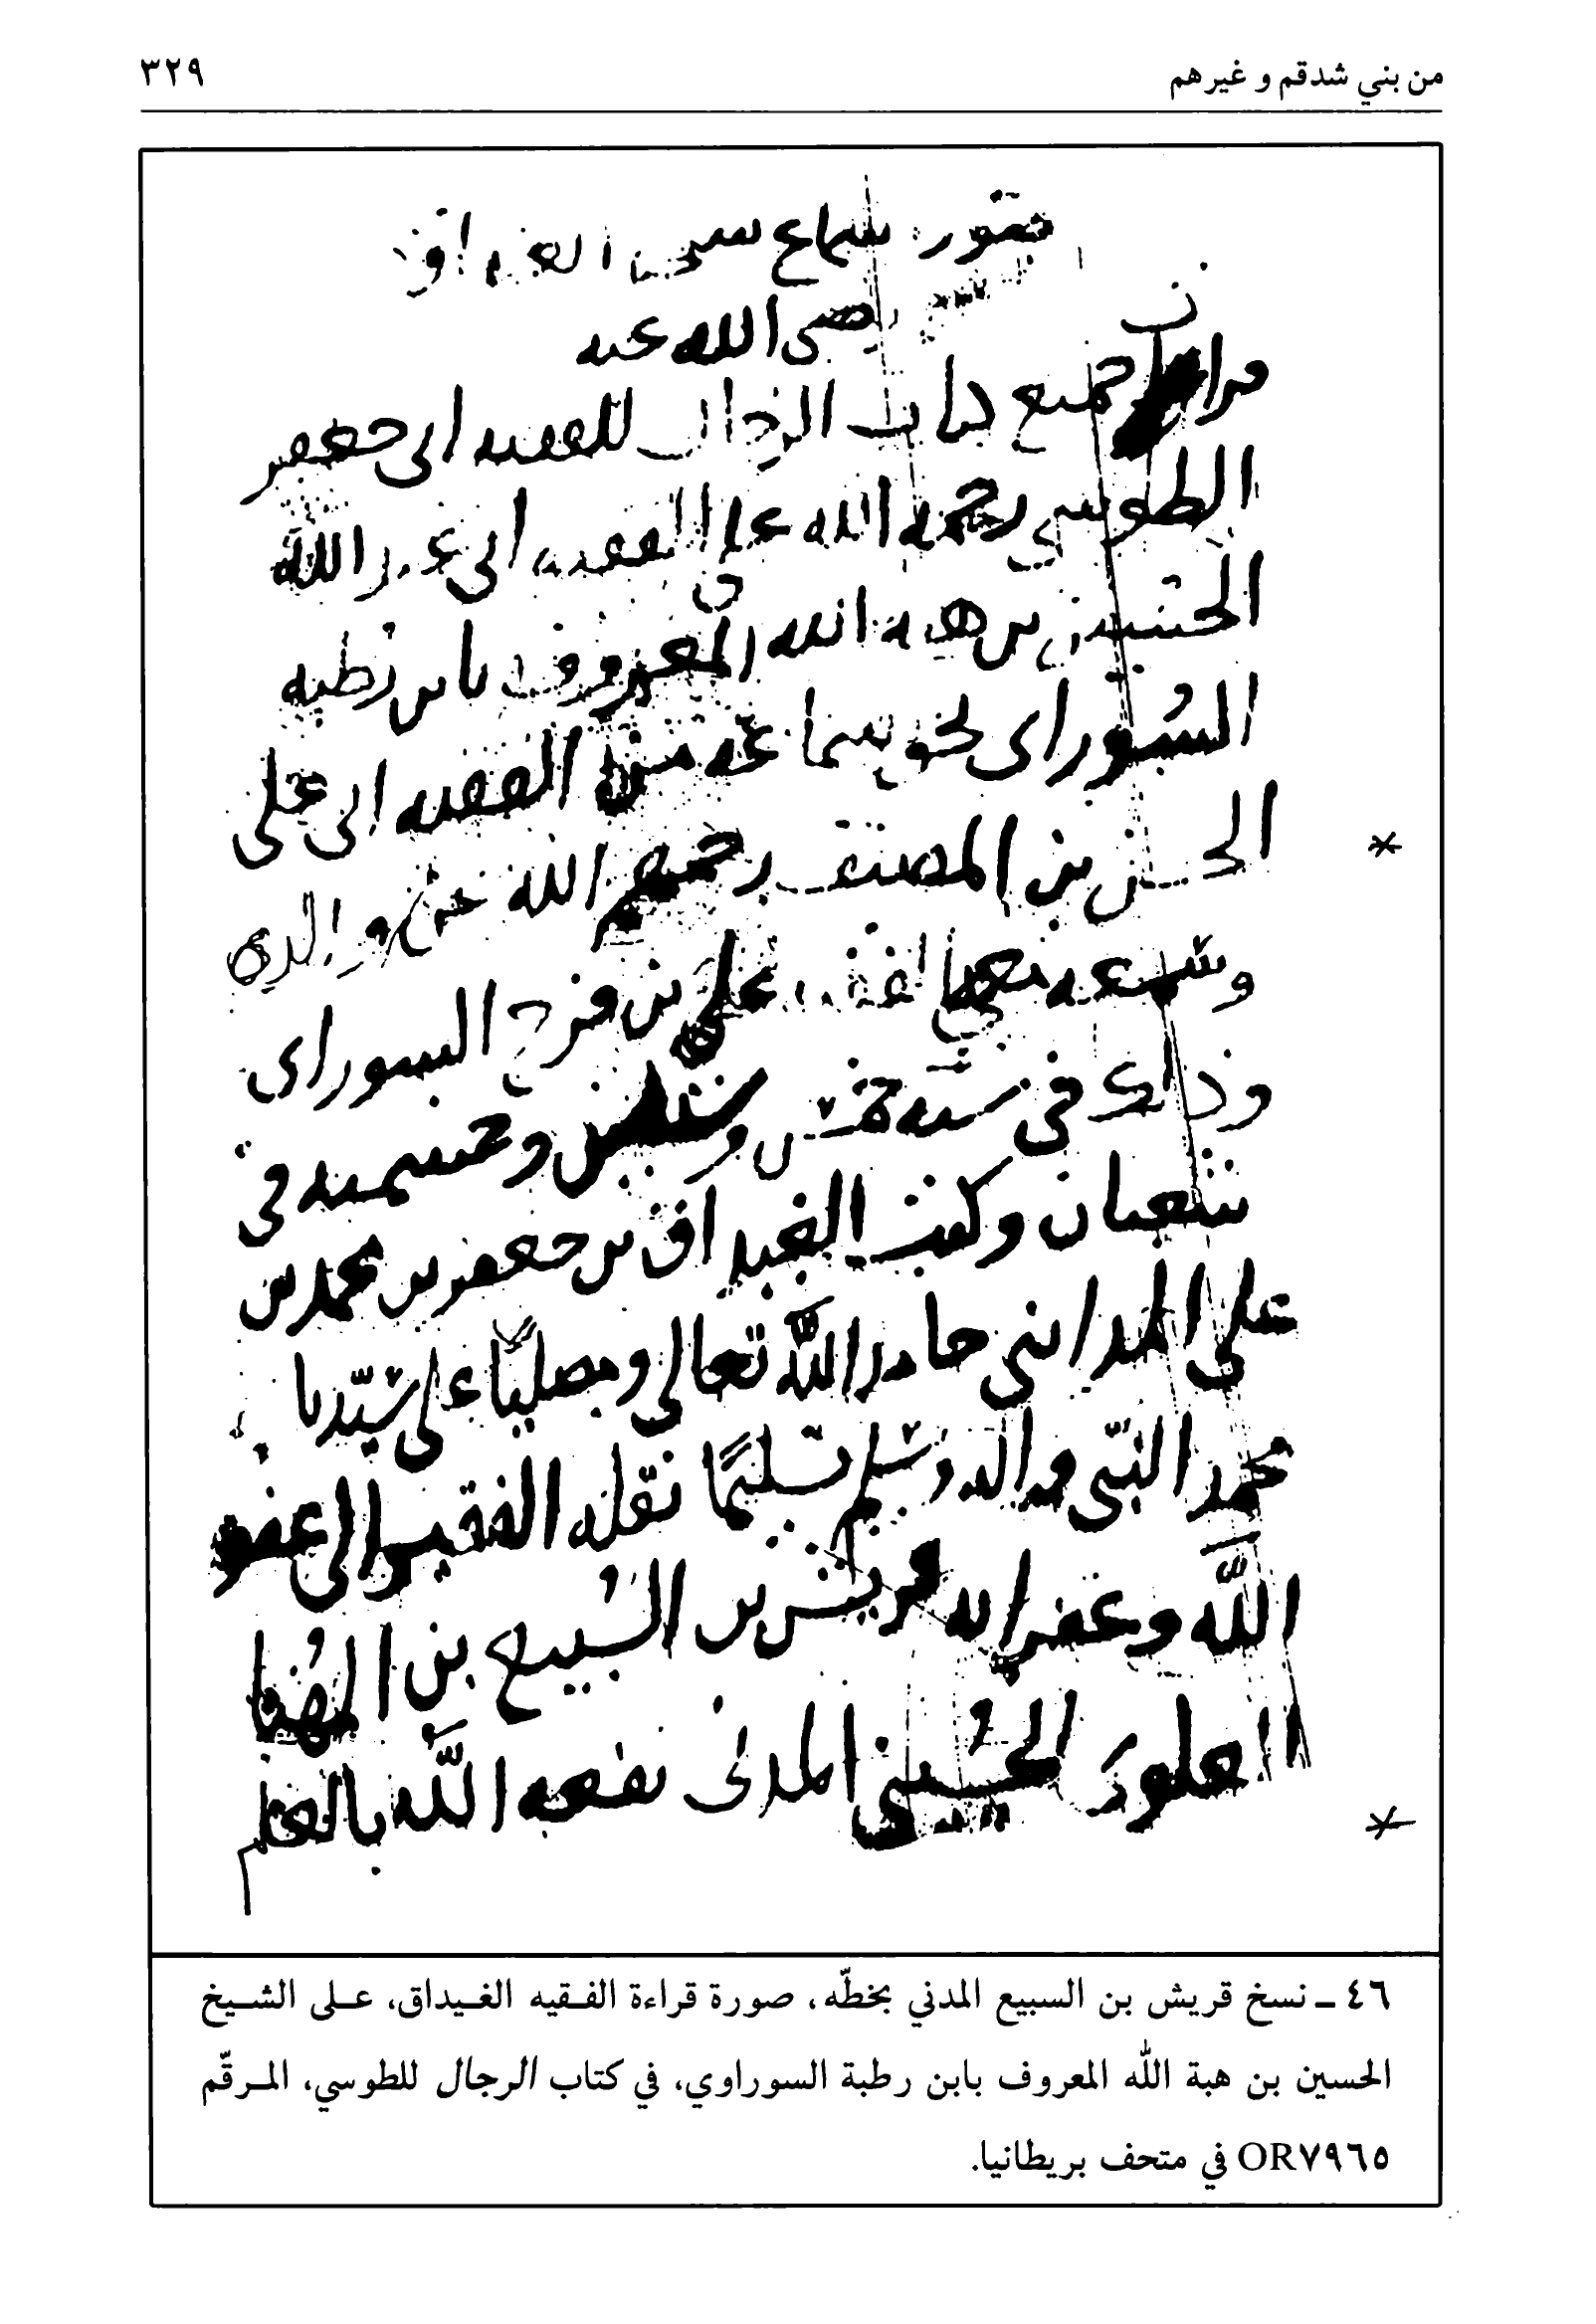 من بني شدقم و غيرهم ٣٢٩
سماع
رضى الله عنه
جميع كتاب الرجال للفقيه ابى جعفر
الطوسي رحمه الله على الفقيه ابى عبد الله
الحسين بن هبة الله المعروف بابن رطبه
السوراى بحق سماعه من الفقيه ابى على
الحسن بن المصنف رحمهم الله عن والده
وسمعه معى الفقيه على بن فرج السوراى
وذلك فى سنه خمس وستين وخمسمیه فى
شعبان وكتب الغيداق بن جعفر بن محمد بن
على المداينى حامدا لله تعالى ومصليا على سيدنا
محمد النبى واله وسلم تسليما نقله الفقير الى عفو
الله وغفرانه قريش بن السبيع بن المهنا
العلوى الحسينى المدنى نفعه الله بالعلم
٤٦ ـ نسخ قريش بن السبيع المدني بخطّه، صورة قراءة الفقيه الغيداق، على الشيخ
الحسين بن هبة الله المعروف بابن رطبة السوراوي، في كتاب الرجال للطوسي، المرقّم
OR٧٩٦٥ في متحف بريطانيا.